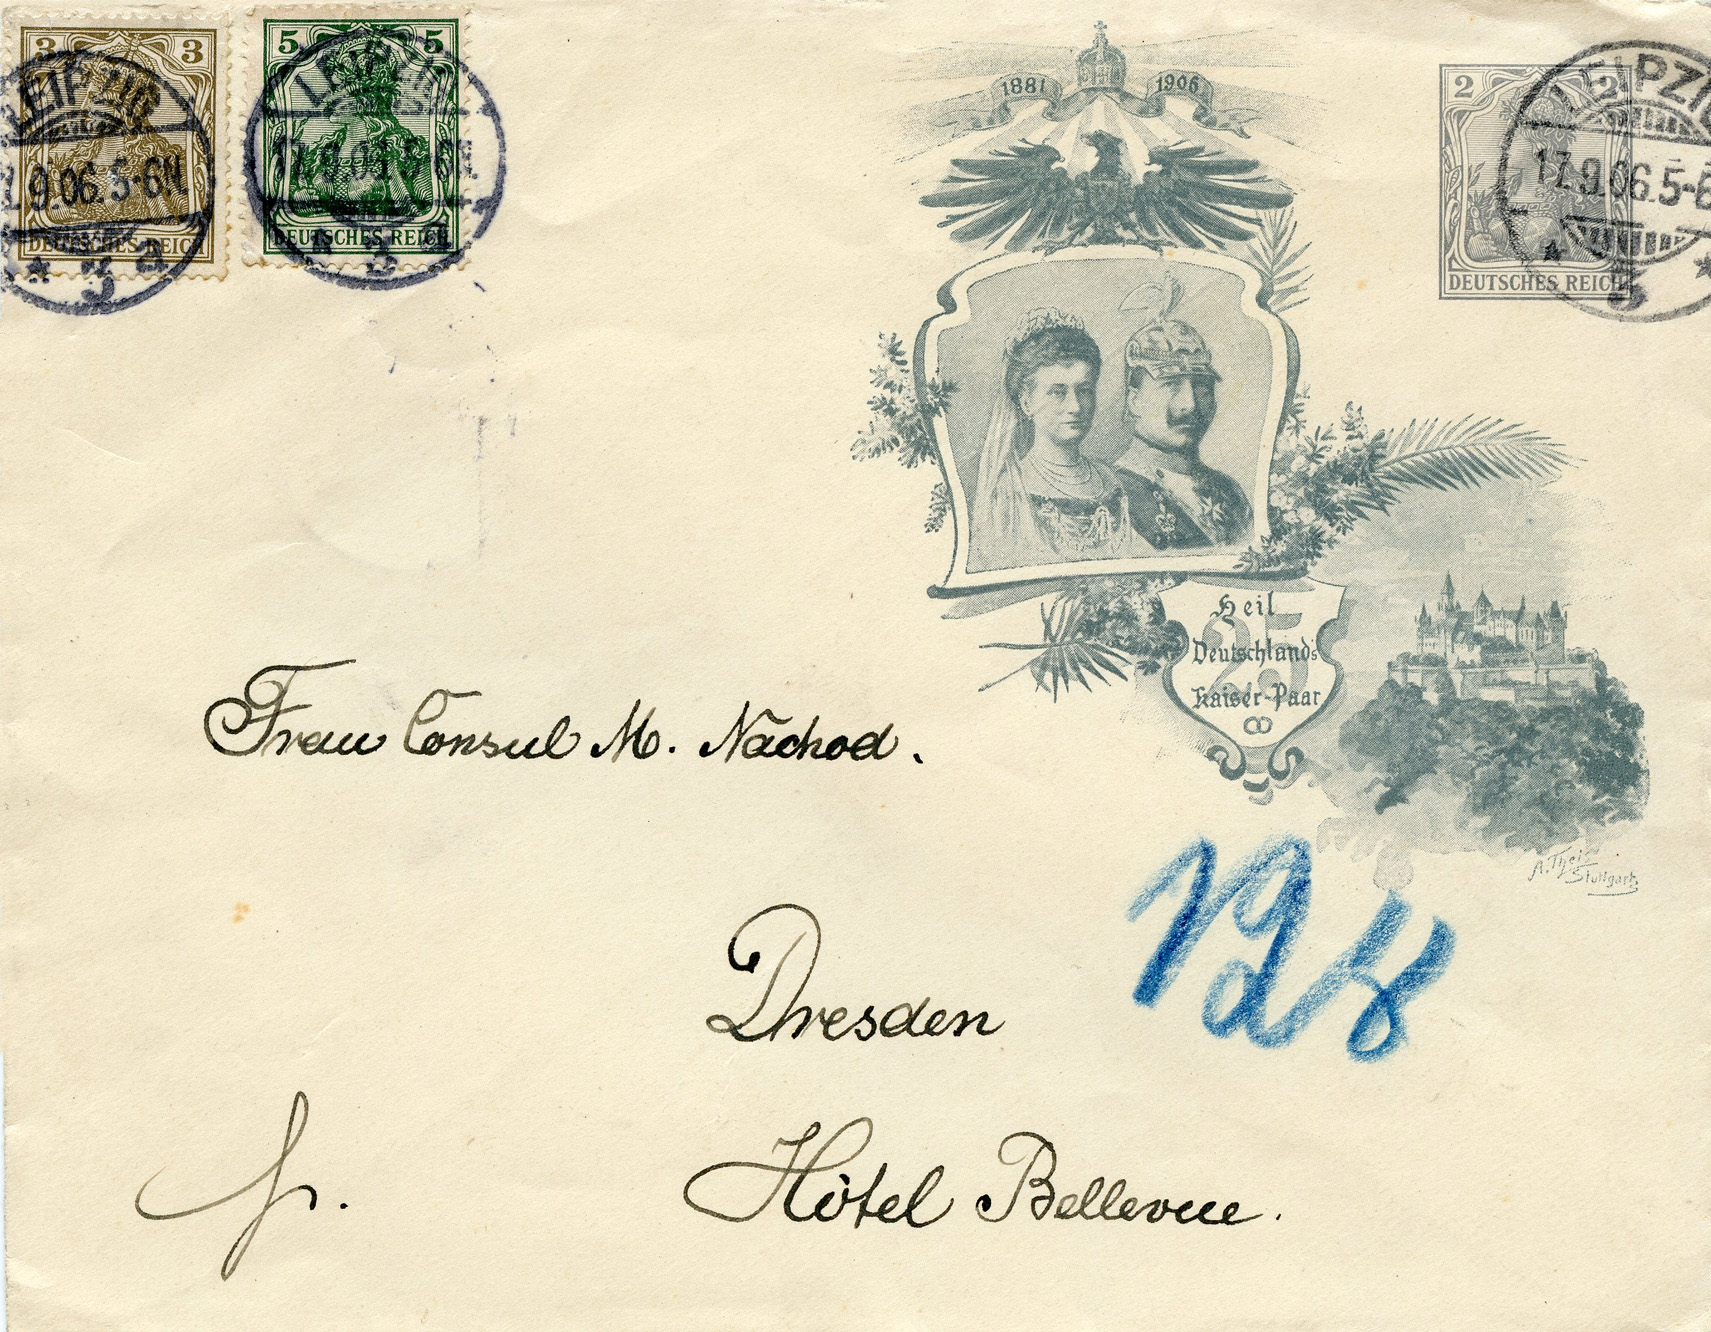 3 3
LEIPZIG
9.06.5-6N
* 3 a
DEUTSCHES REICH
5 5
LEIPZIG
17.9.06.5-6N
DEUTSCHES REICH
1881 1906
2 2
LEIPZIG
17.9.06.5-6
* 3 *
DEUTSCHES REICH
25
Heil
Deutschland's
Kaiser-Paar
Stuttgart
Frau Consul M. Nachod.
Dresden
fr.
Hôtel Bellevue.